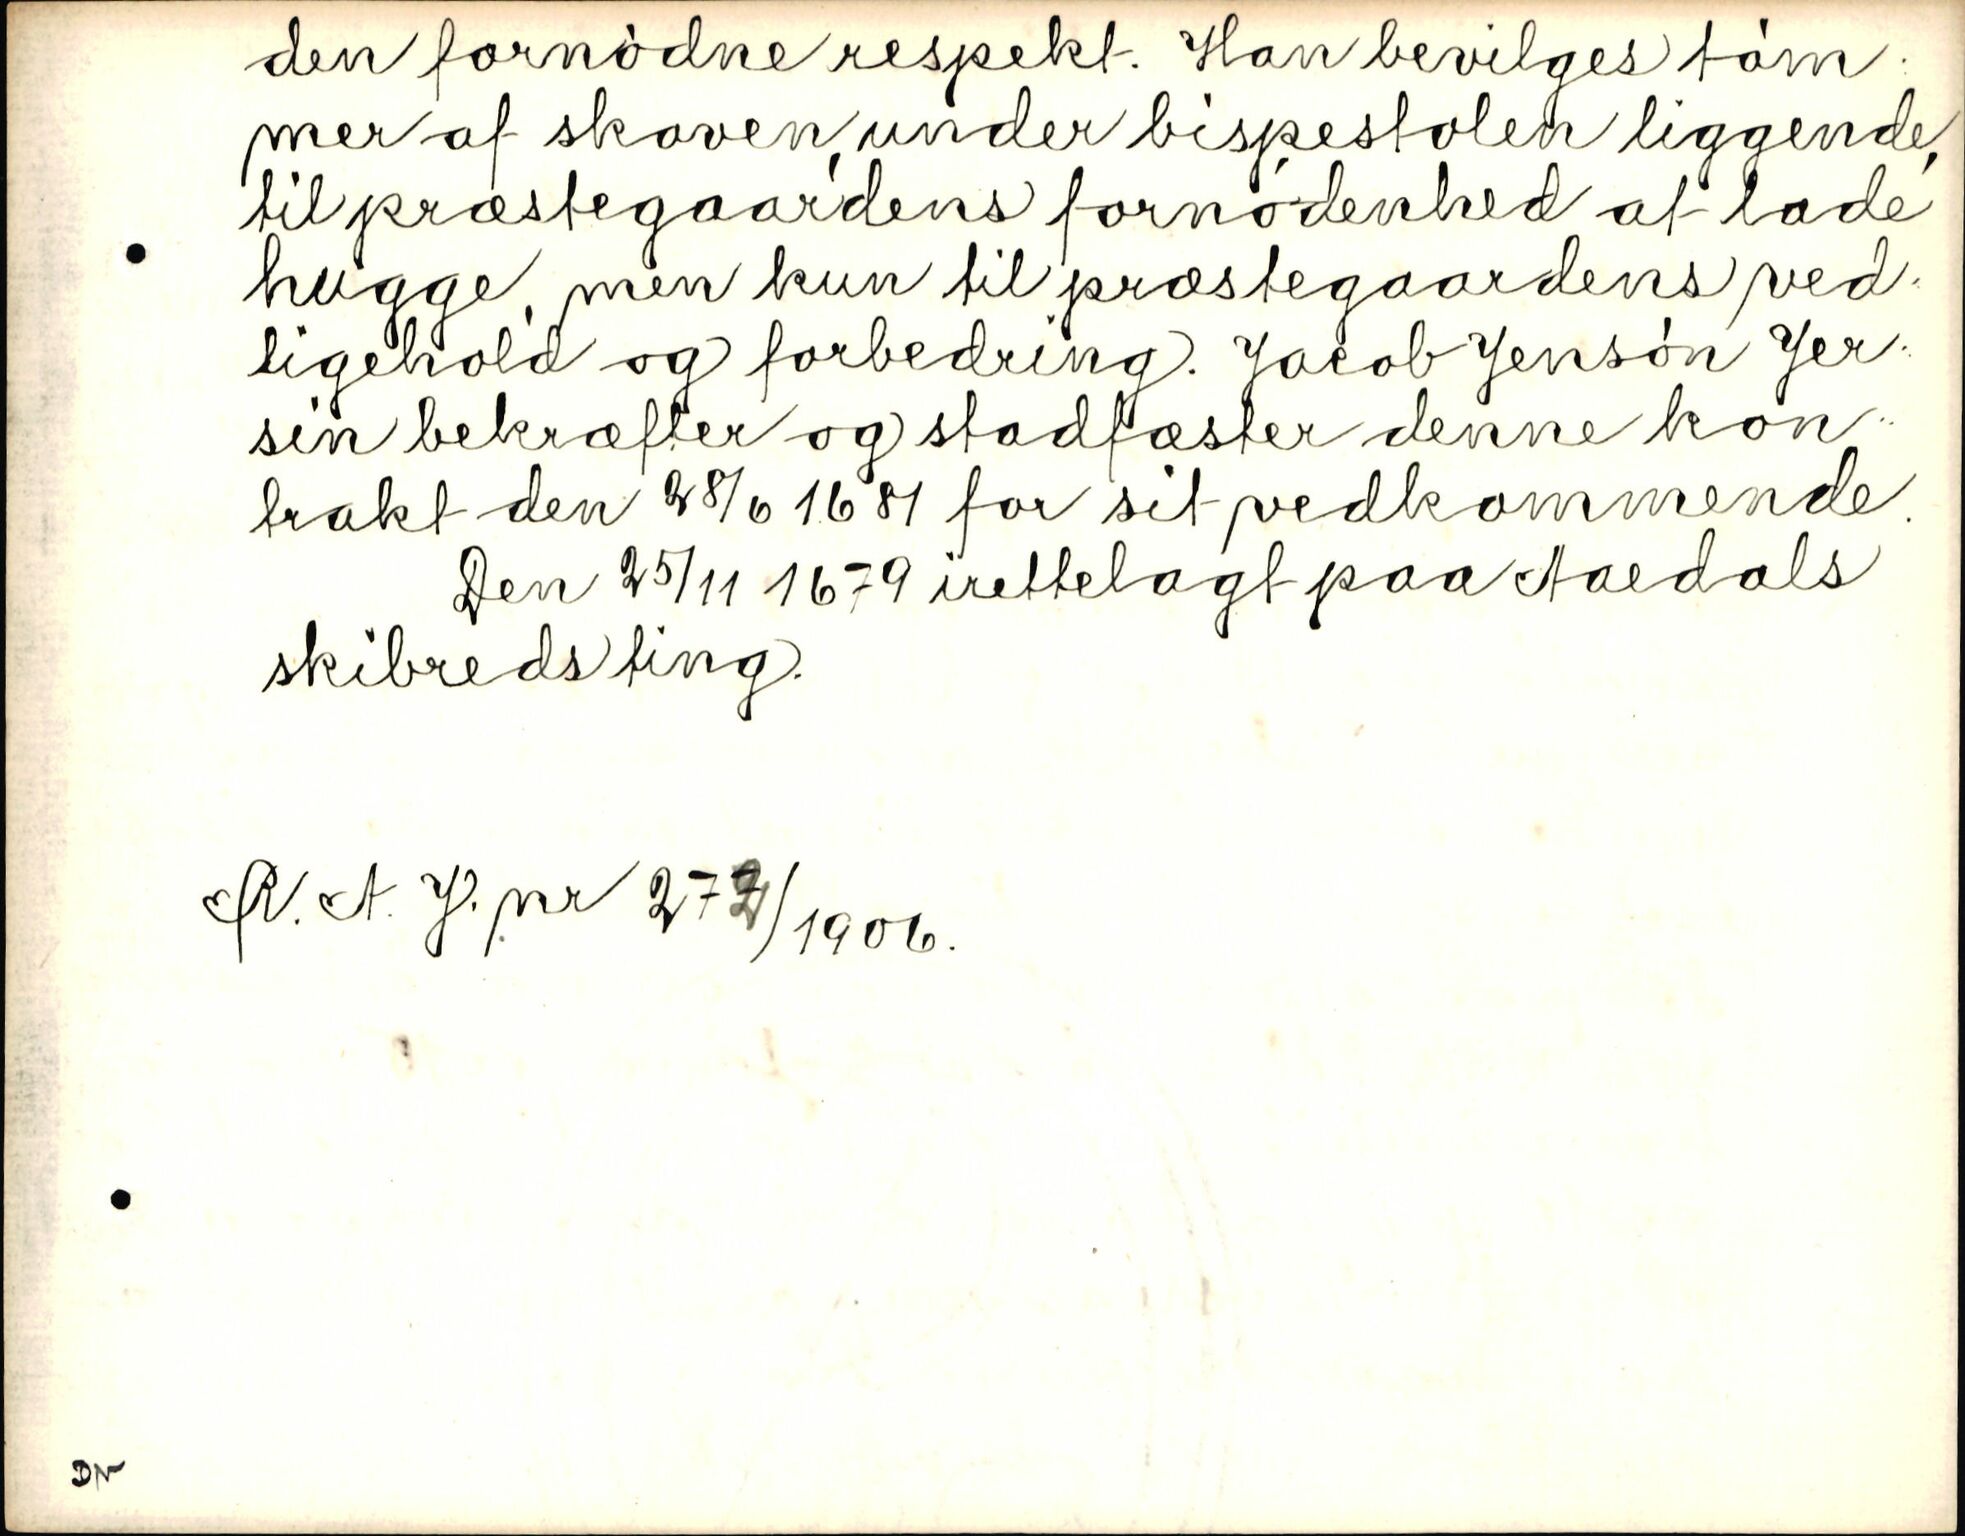 den fornödne respekt. Han bevilges töm-
mer af skoven, under bispestolen liggende,
til præstegaardens fornödenhed at lade
hugge, men kun til præstegaardens ved-
ligehold og forbedring. Jacob Jensön Jer-
sin bekræfter og stadfæster denne kon-
trakt den 28/6 1681 for sit vedkommende.
Den 25/11 1679 irettelagt paa Aaedals
skibreds ting.
R. A. J. nr 272/1906.
DN